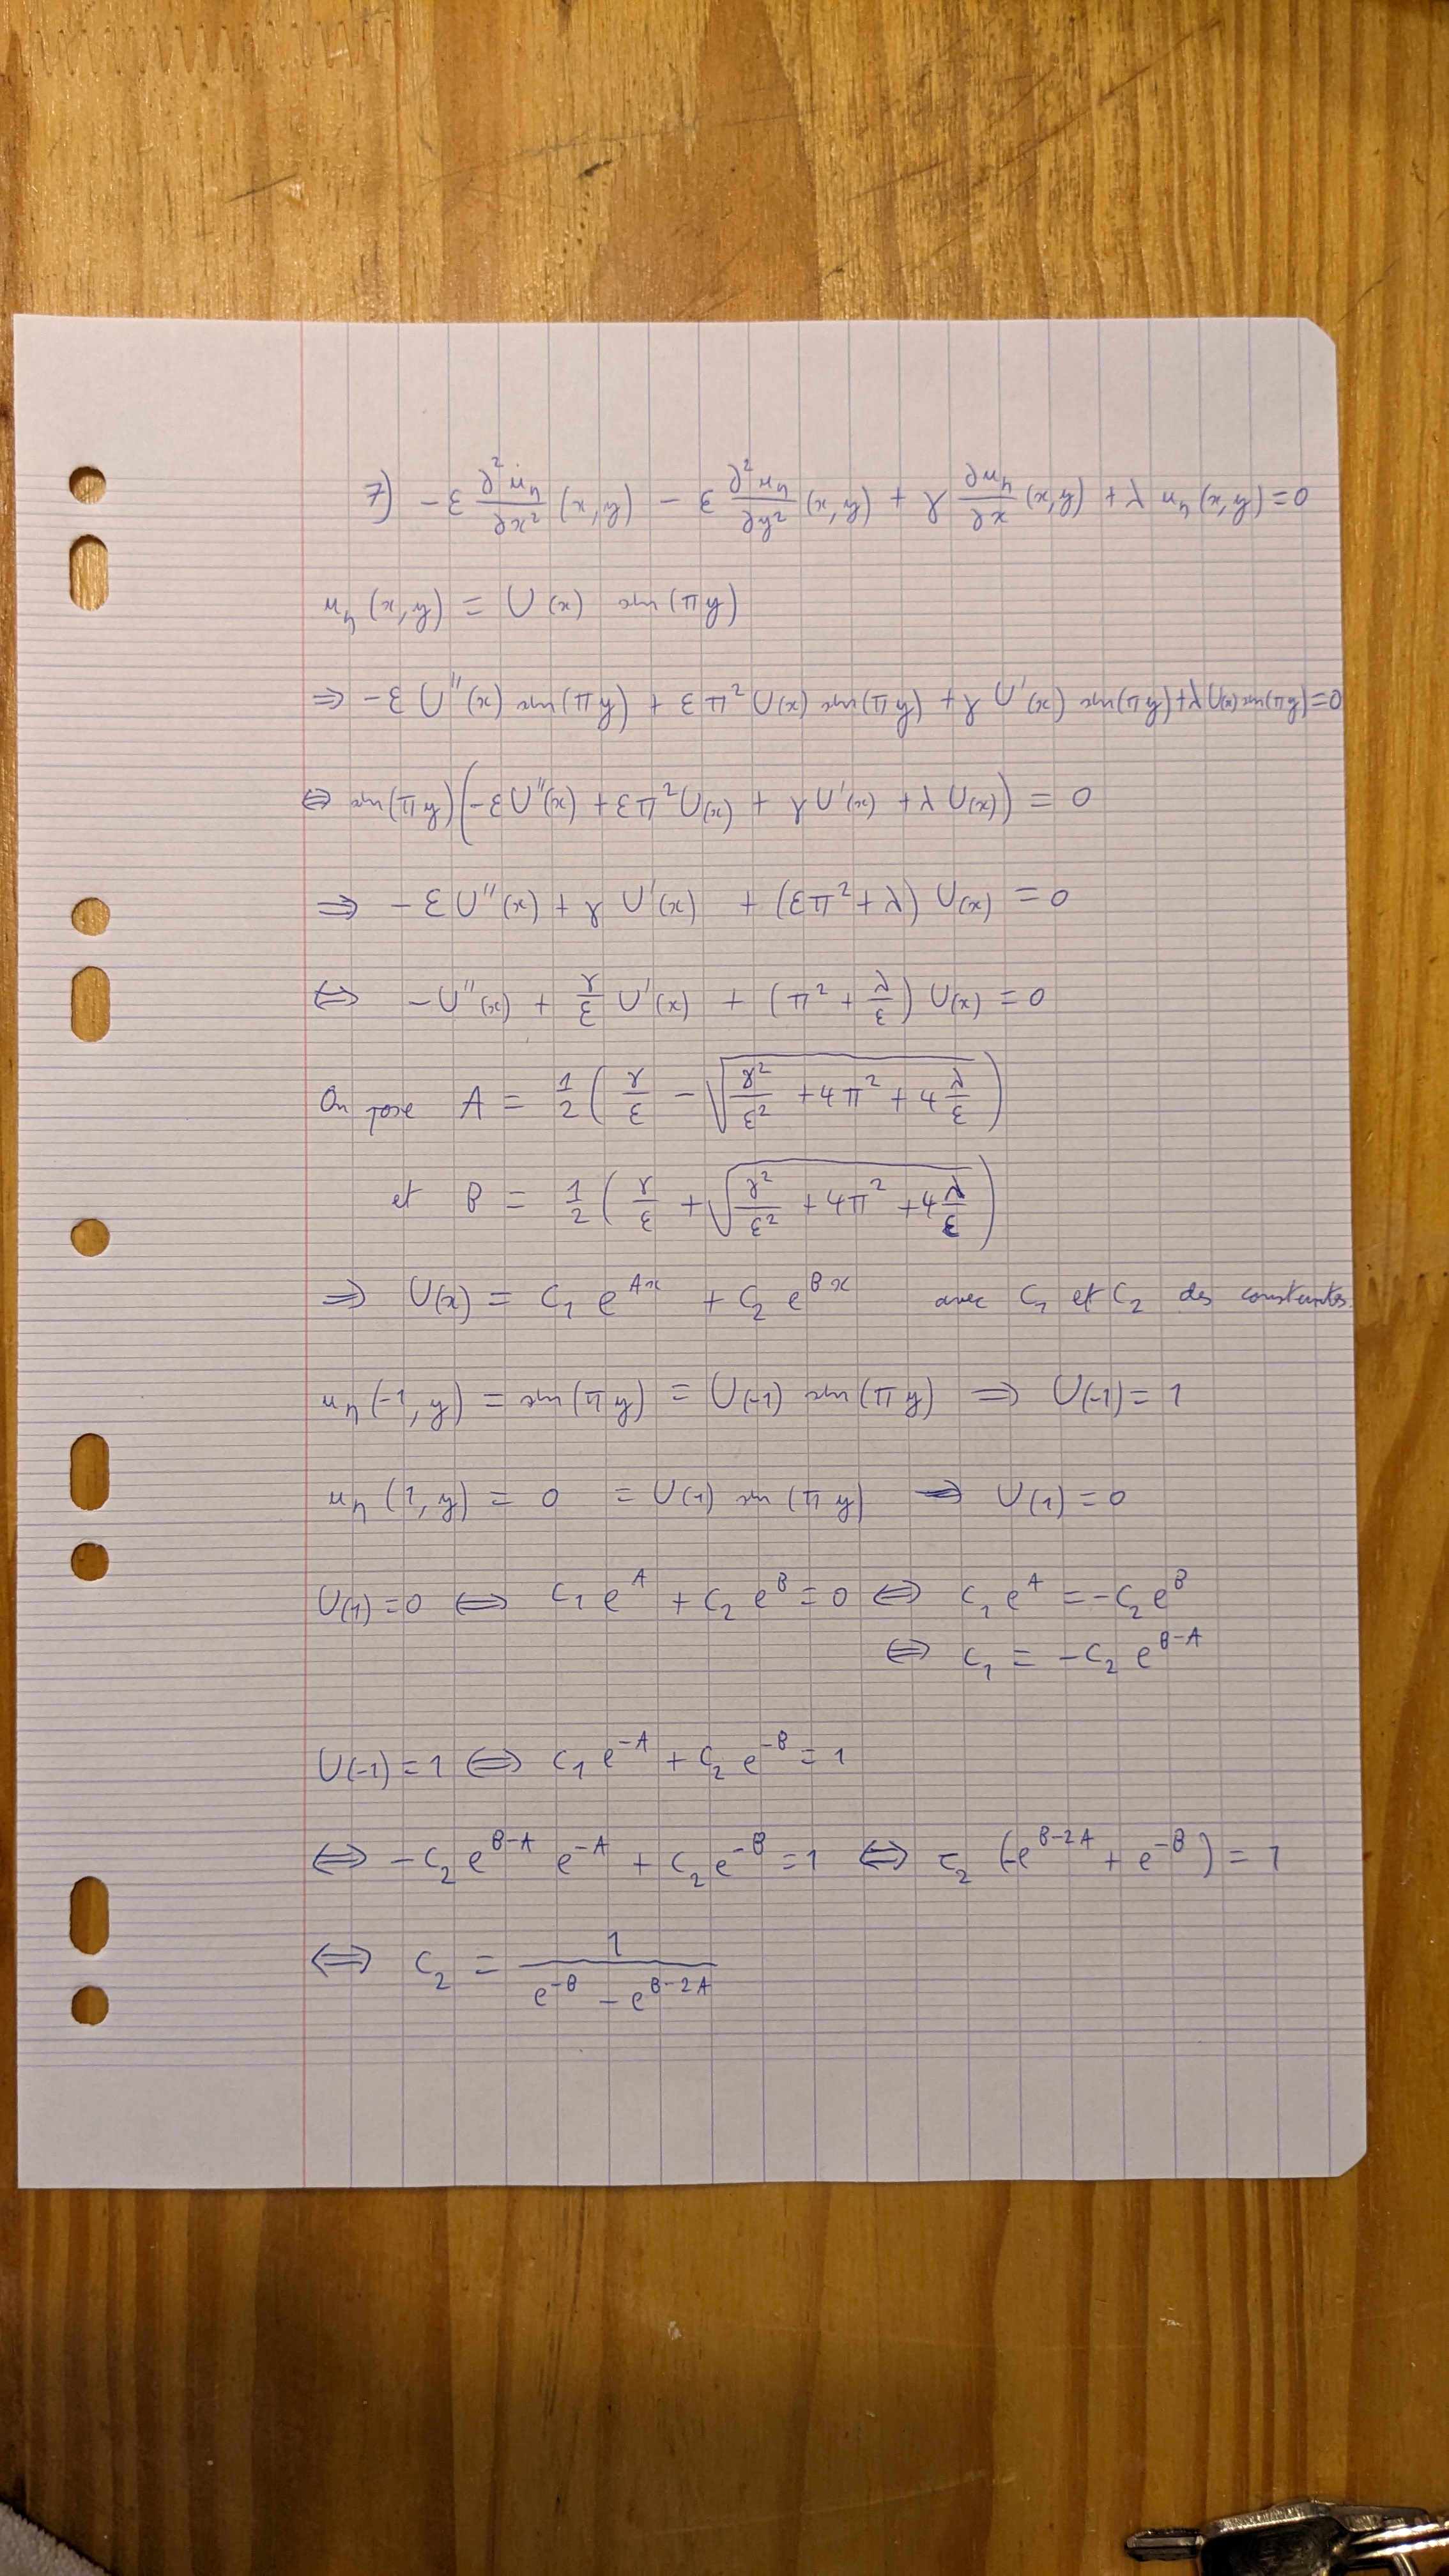 7) -ε ∂²u₄/∂x² (x,y) - ε ∂²u₄/∂y² (x,y) + γ ∂u₄/∂x (x,y) + λ u₄(x,y) = 0
u₄(x,y) = U(x) sin(πy)
⇒ -ε U''(x) sin(πy) + επ² U(x) sin(πy) + γ U'(x) sin(πy) + λ U(x) sin(πy) = 0
⇔ sin(πy) (-εU''(x) + επ²U(x) + γU'(x) + λU(x)) = 0
⇒ -εU''(x) + γ U'(x) + (επ² + λ) U(x) = 0
⇔ -U''(x) + γ/ε U'(x) + (π² + λ/ε) U(x) = 0
On pose A = 1/2 (γ/ε - √(γ²/ε² + 4π² + 4 λ/ε))
et B = 1/2 (γ/ε + √(γ²/ε² + 4π² + 4 λ/ε))
⇒ U(x) = C₁ e^{Ax} + C₂ e^{Bx} avec C₁ et C₂ des constantes
u₄(-1,y) = sin(πy) = U(-1) sin(πy) ⇒ U(-1) = 1
u₄(1,y) = 0 = U(1) sin(πy) ⇒ U(1) = 0
U(1) = 0 ⇔ C₁ e^{A} + C₂ e^{B} = 0 ⇔ C₁ e^{A} = -C₂ e^{B}
⇔ C₁ = -C₂ e^{B-A}
U(-1) = 1 ⇔ C₁ e^{-A} + C₂ e^{-B} = 1
⇔ -C₂ e^{B-A} e^{-A} + C₂ e^{-B} = 1 ⇔ C₂ (-e^{B-2A} + e^{-B}) = 1
⇔ C₂ = 1/(e^{-B} - e^{B-2A})